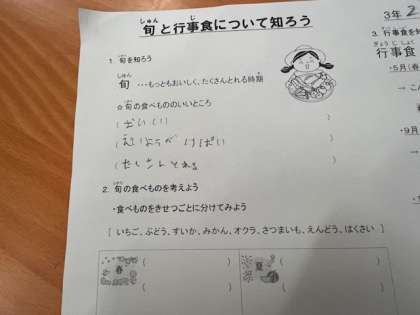 旬と行事食について知ろう
1. 旬を知ろう
旬 …もっともおいしく、たくさんとれる時期
☆旬の食べもののいいところ
( おいしい )
( えいようがいっぱい )
( たくさんとれる )
2. 旬の食べものを考えよう
・食べものをきせつごとに分けてみよう
[ いちご、ぶどう、すいか、みかん、オクラ、さつまいも、えんどう、はくさい ]
春 ( )
( )
夏 (
(
3年 2
3. 行事食を知
行事食
・5月(春
→ こ
・9月
→